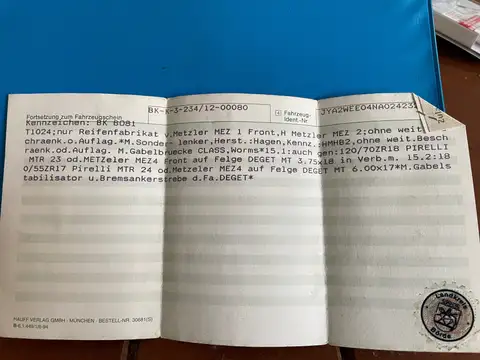 BK-K-3-234/12-00080
Fortsetzung zum Fahrzeugschein
Fahrzeug-
Ident-Nr
JYA2WEE04NA02423
Kennzeichen: BK BO81
T1024;nur Reifenfabrikat v.Metzler MEZ 1 Front,H Metzler MEZ 2;ohne weit.
schraenk.o.Auflag.*M.Sonder- lenker,Herst.:Hagen,Kennz.:HMHB2,ohne weit.Besch
raenk.od.Auflag. M.Gabelbruecke CLASS,Worms*15.1:auch gen:120/70ZR18 PIRELLI
MTR 23 od.METZeler MEZ4 front auf Felge DEGET MT 3.75x18 in Verb.m. 15.2:18
0/55ZR17 Pirelli MTR 24 od.Metzeler MEZ4 auf Felge DEGET MT 6.00x17*M.Gabels
tabilisator u.Bremsankerstrebe d.Fa.DEGET*
HAUFF VERLAG GMBH · MÜNCHEN · BESTELL-NR. 30681(S)
Landkreis
Börde